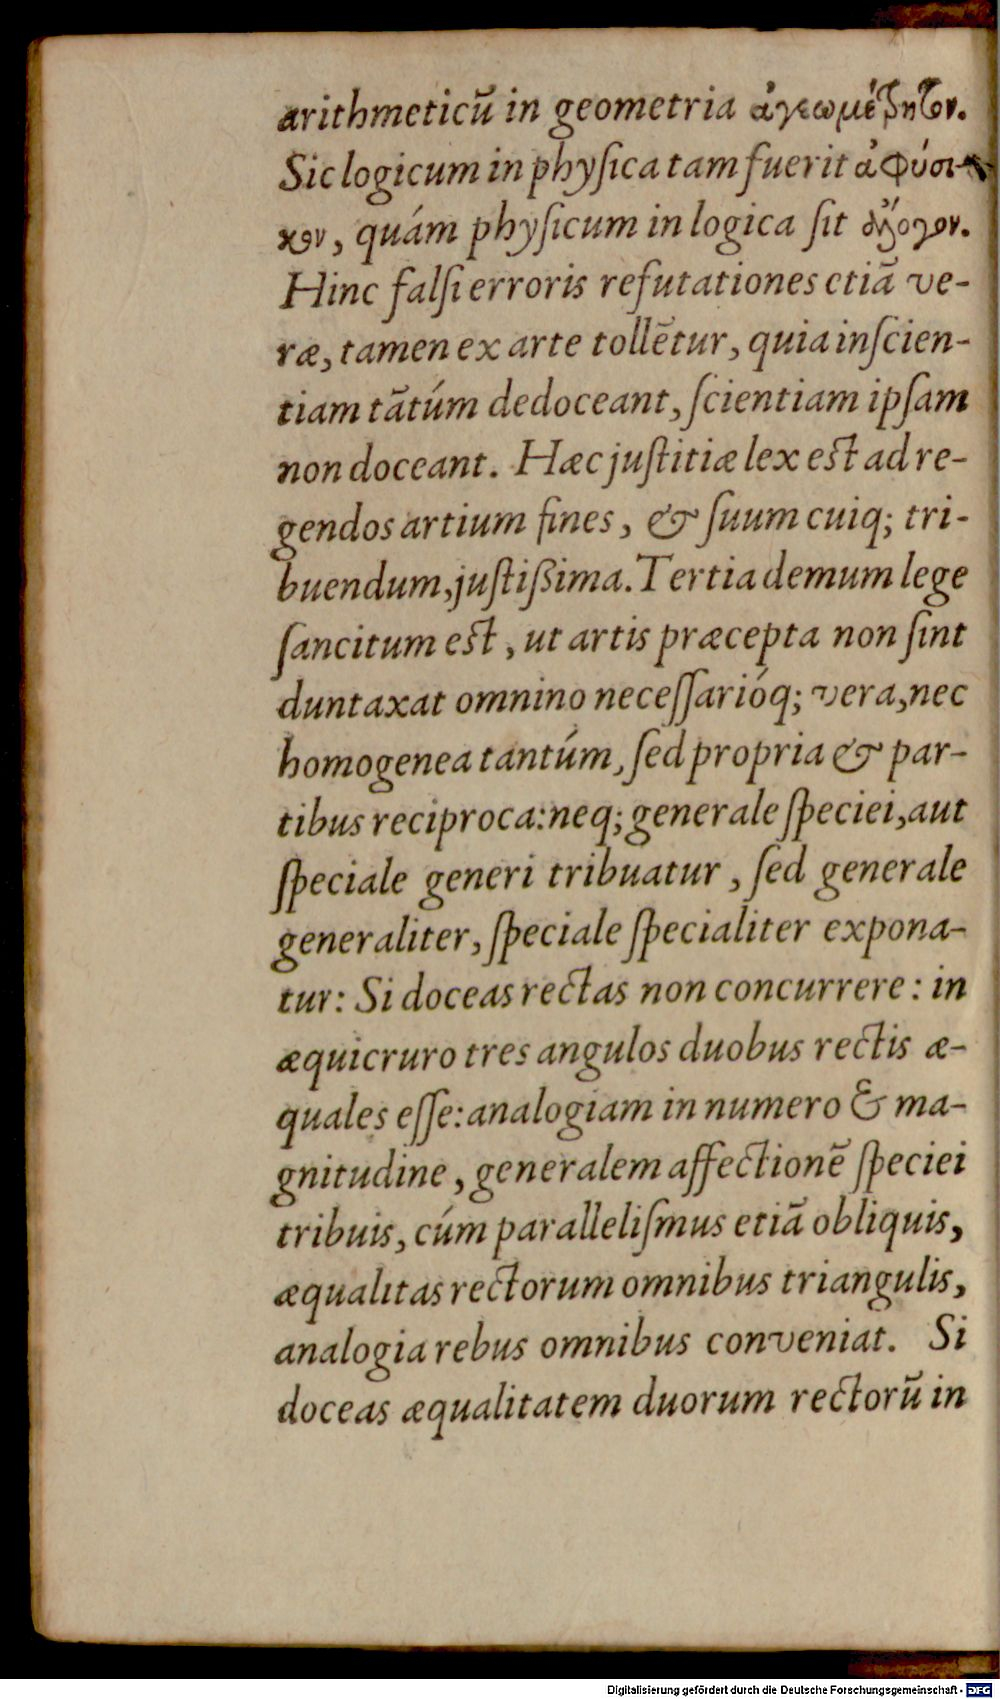 arithmeticū in geometria ἀγεωμέτρητον.
Sic logicum in phyſica tam fuerit ἀφύσι-
κον, quám phyſicum in logica ſit ἄλογον.
Hinc falſi erroris refutationes etiā ve-
ræ, tamen ex arte tollētur, quia inſcien-
tiam tātúm dedoceant, ſcientiam ipſam
non doceant. Hæc juſtitiæ lex eſt ad re-
gendos artium fines, & ſuum cuiq; tri-
buendum, juſtißima. Tertia demum lege
ſancitum eſt, ut artis præcepta non ſint
duntaxat omnino neceſſarióq; vera, nec
homogenea tantúm, ſed propria & par-
tibus reciproca: neq; generale ſpeciei, aut
ſpeciale generi tribuatur, ſed generale
generaliter, ſpeciale ſpecialiter expona-
tur: Si doceas rectas non concurrere: in
æquicruro tres angulos duobus rectis æ-
quales eſſe: analogiam in numero & ma-
gnitudine, generalem affectionē ſpeciei
tribuis, cúm paralleliſmus etiā obliquis,
æqualitas rectorum omnibus triangulis,
analogia rebus omnibus conveniat. Si
doceas æqualitatem duorum rectorū in
Digitalisierung gefördert durch die Deutsche Forschungsgemeinschaft - DFG